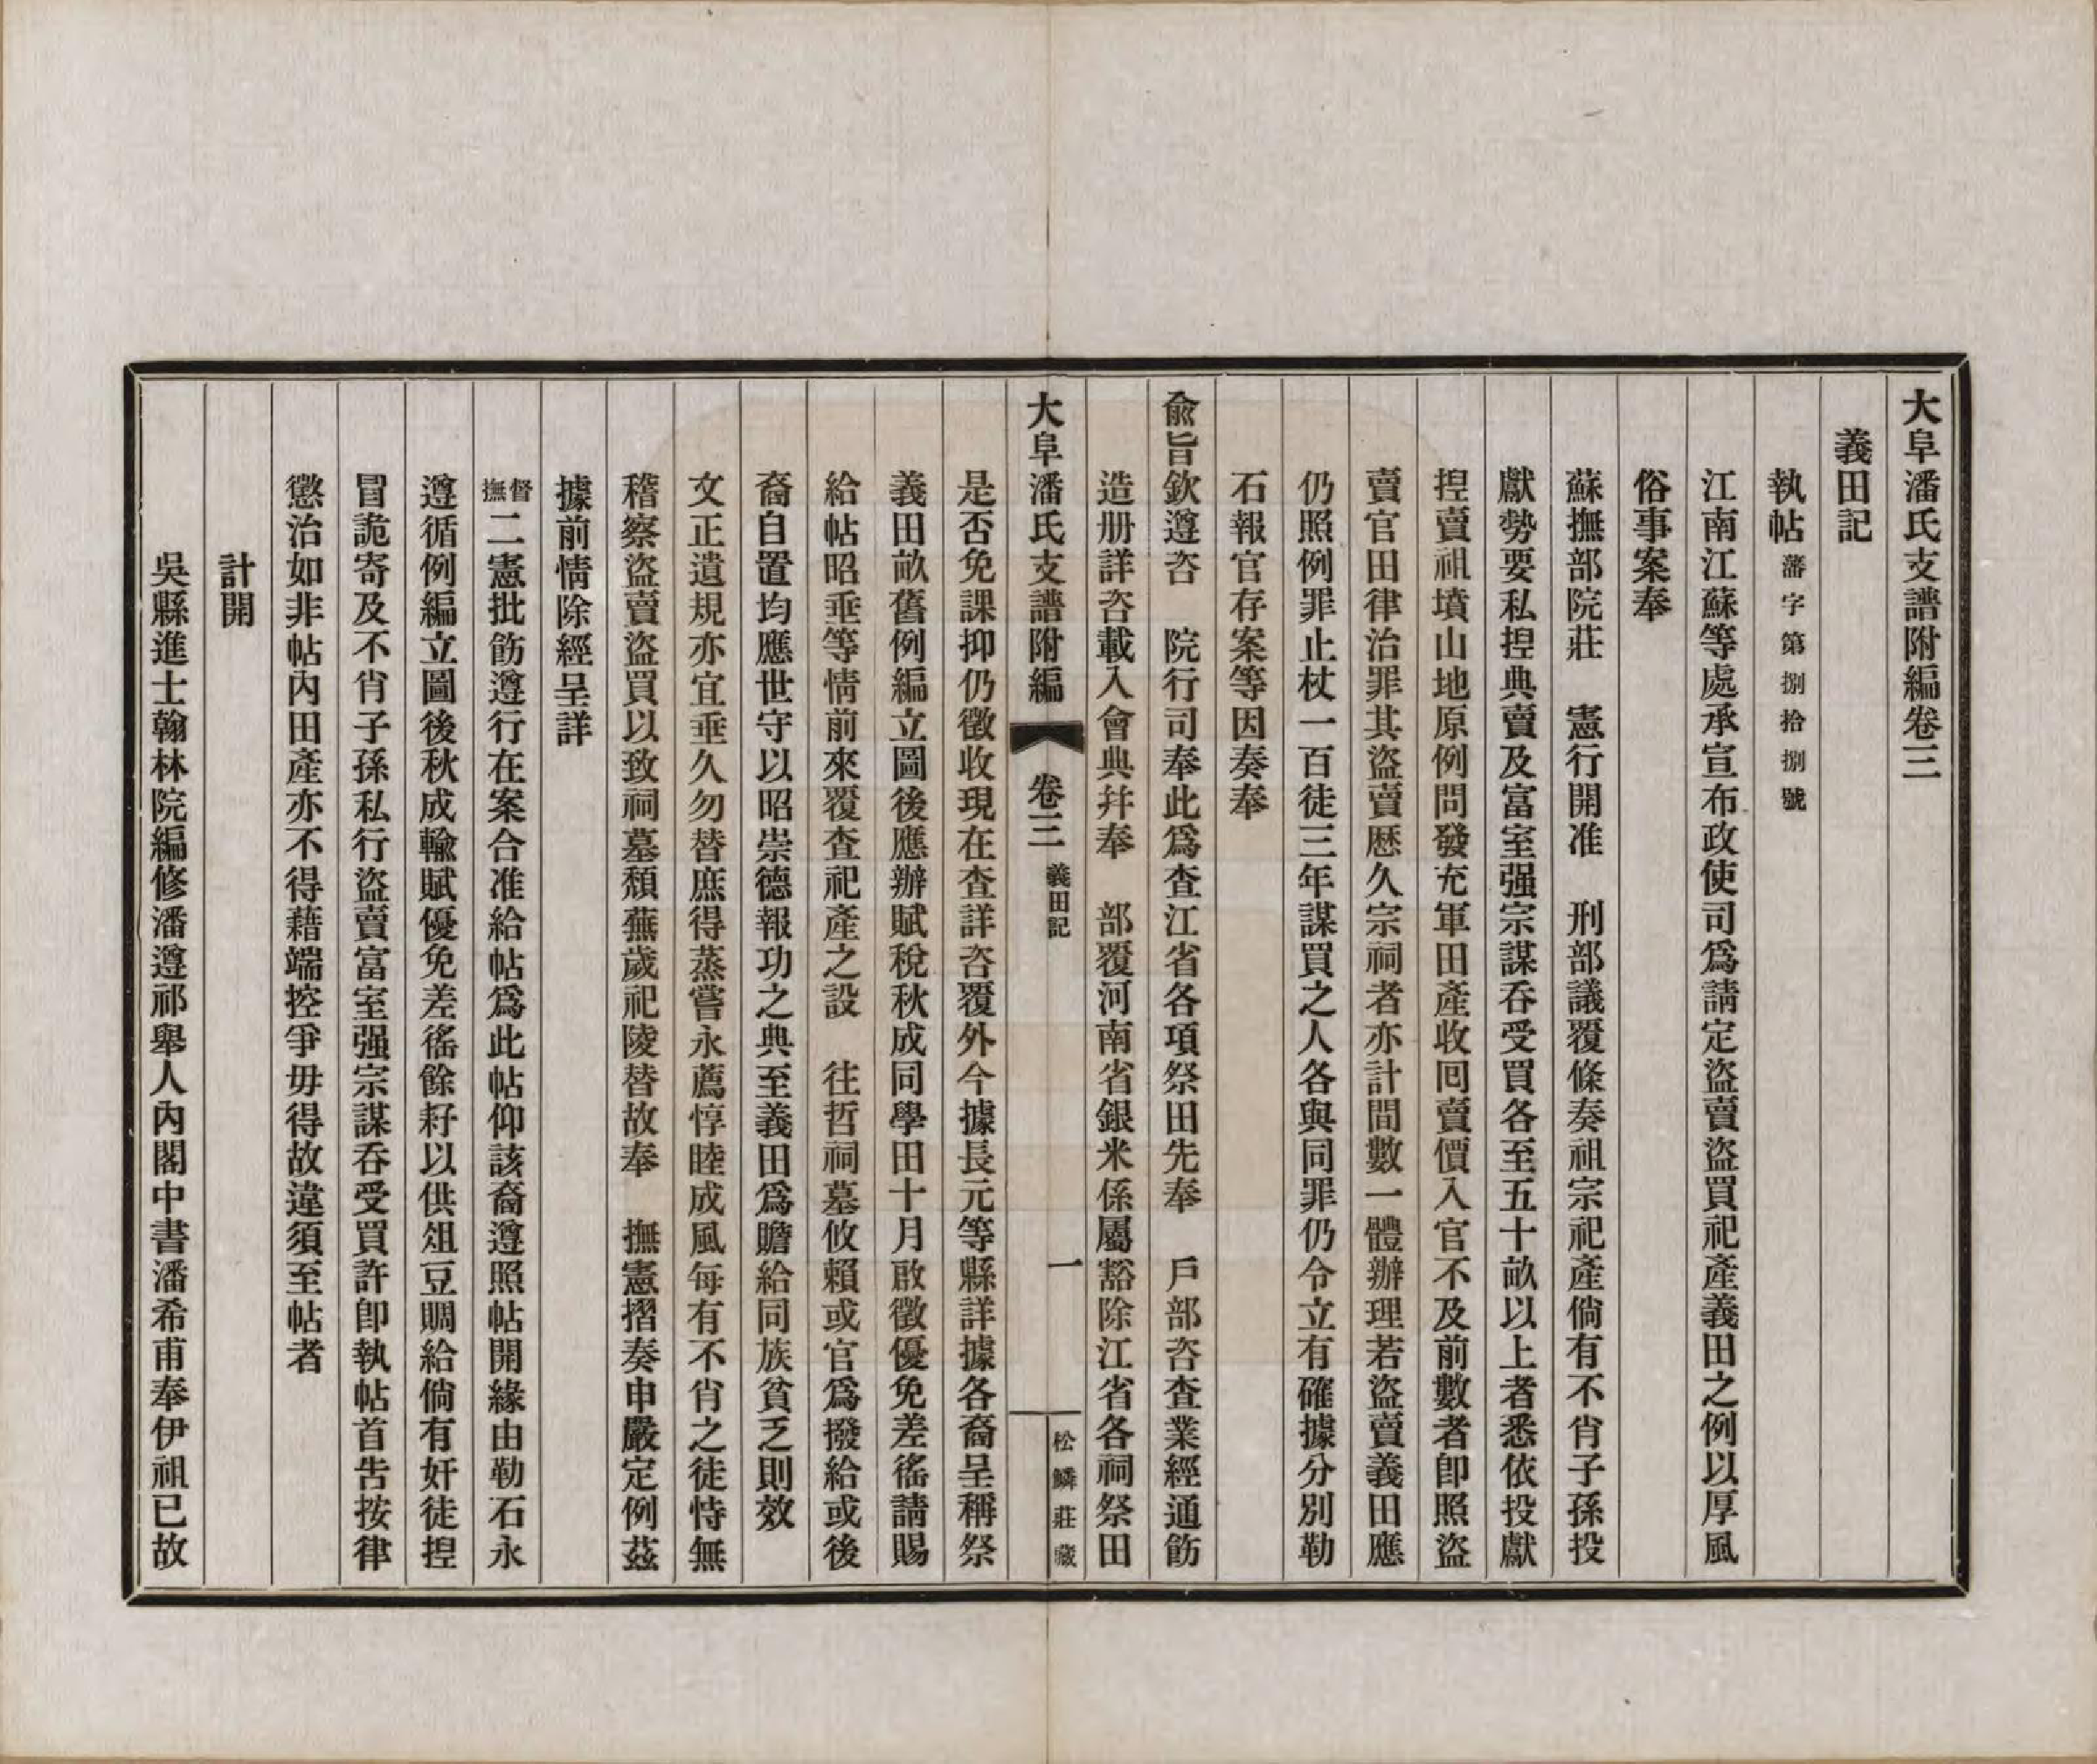 大阜潘氏支譜附編卷三
義田記
執帖藩字第捌拾捌號
江南江蘇等處承宣布政使司爲請定盜賣盜買祀產義田之例以厚風
俗事案奉
蘇撫部院莊　憲行開准　刑部議覆條奏祖宗祀產倘有不肖子孫投
獻勢要私揑典賣及富室强宗謀吞受買各至五十畝以上者悉依投獻
捏賣祖墳山地原例問發充軍田產收囘賣價入官不及前數者卽照盜
賣官田律治罪其盜賣歷久宗祠者亦計間數一體辦理若盜賣義田應
仍照例罪止杖一百徒三年謀買之人各與同罪仍令立有確據分別勒
石報官存案等因奏奉
兪旨欽遵咨　院行司奉此爲查江省各項祭田先奉　戶部咨查業經通飭
造册詳咨載入會典幷奉　部覆河南省銀米係屬豁除江省各祠祭田
大阜潘氏支譜附編　卷三　義田記　一　松鱗莊藏
是否免課抑仍徵收現在查詳咨覆外今據長元等縣詳據各裔呈稱祭
義田畝舊例編立圖後應辦賦稅秋成同學田十月啟徵優免差徭請賜
給帖昭垂等情前來覆查祀產之設　往哲祠墓攸賴或官爲撥給或後
裔自置均應世守以昭崇德報功之典至義田爲贍給同族貧乏則效
文正遺規亦宜垂久勿替庶得蒸嘗永薦惇睦成風每有不肖之徒恃無
稽察盜賣盜買以致祠墓頹蕪歲祀陵替故奉　撫憲摺奏申嚴定例茲
據前情除經呈詳
督撫二憲批飭遵行在案合准給帖爲此帖仰該裔遵照帖開緣由勒石永
遵循例編立圖後秋成輸賦優免差徭餘籽以供俎豆賙給倘有奸徒捏
冒詭寄及不肖子孫私行盜賣富室强宗謀吞受買許卽執帖首吿按律
懲治如非帖內田產亦不得藉端控爭毋得故違須至帖者
計開
吳縣進士翰林院編修潘遵祁舉人內閣中書潘希甫奉伊祖已故